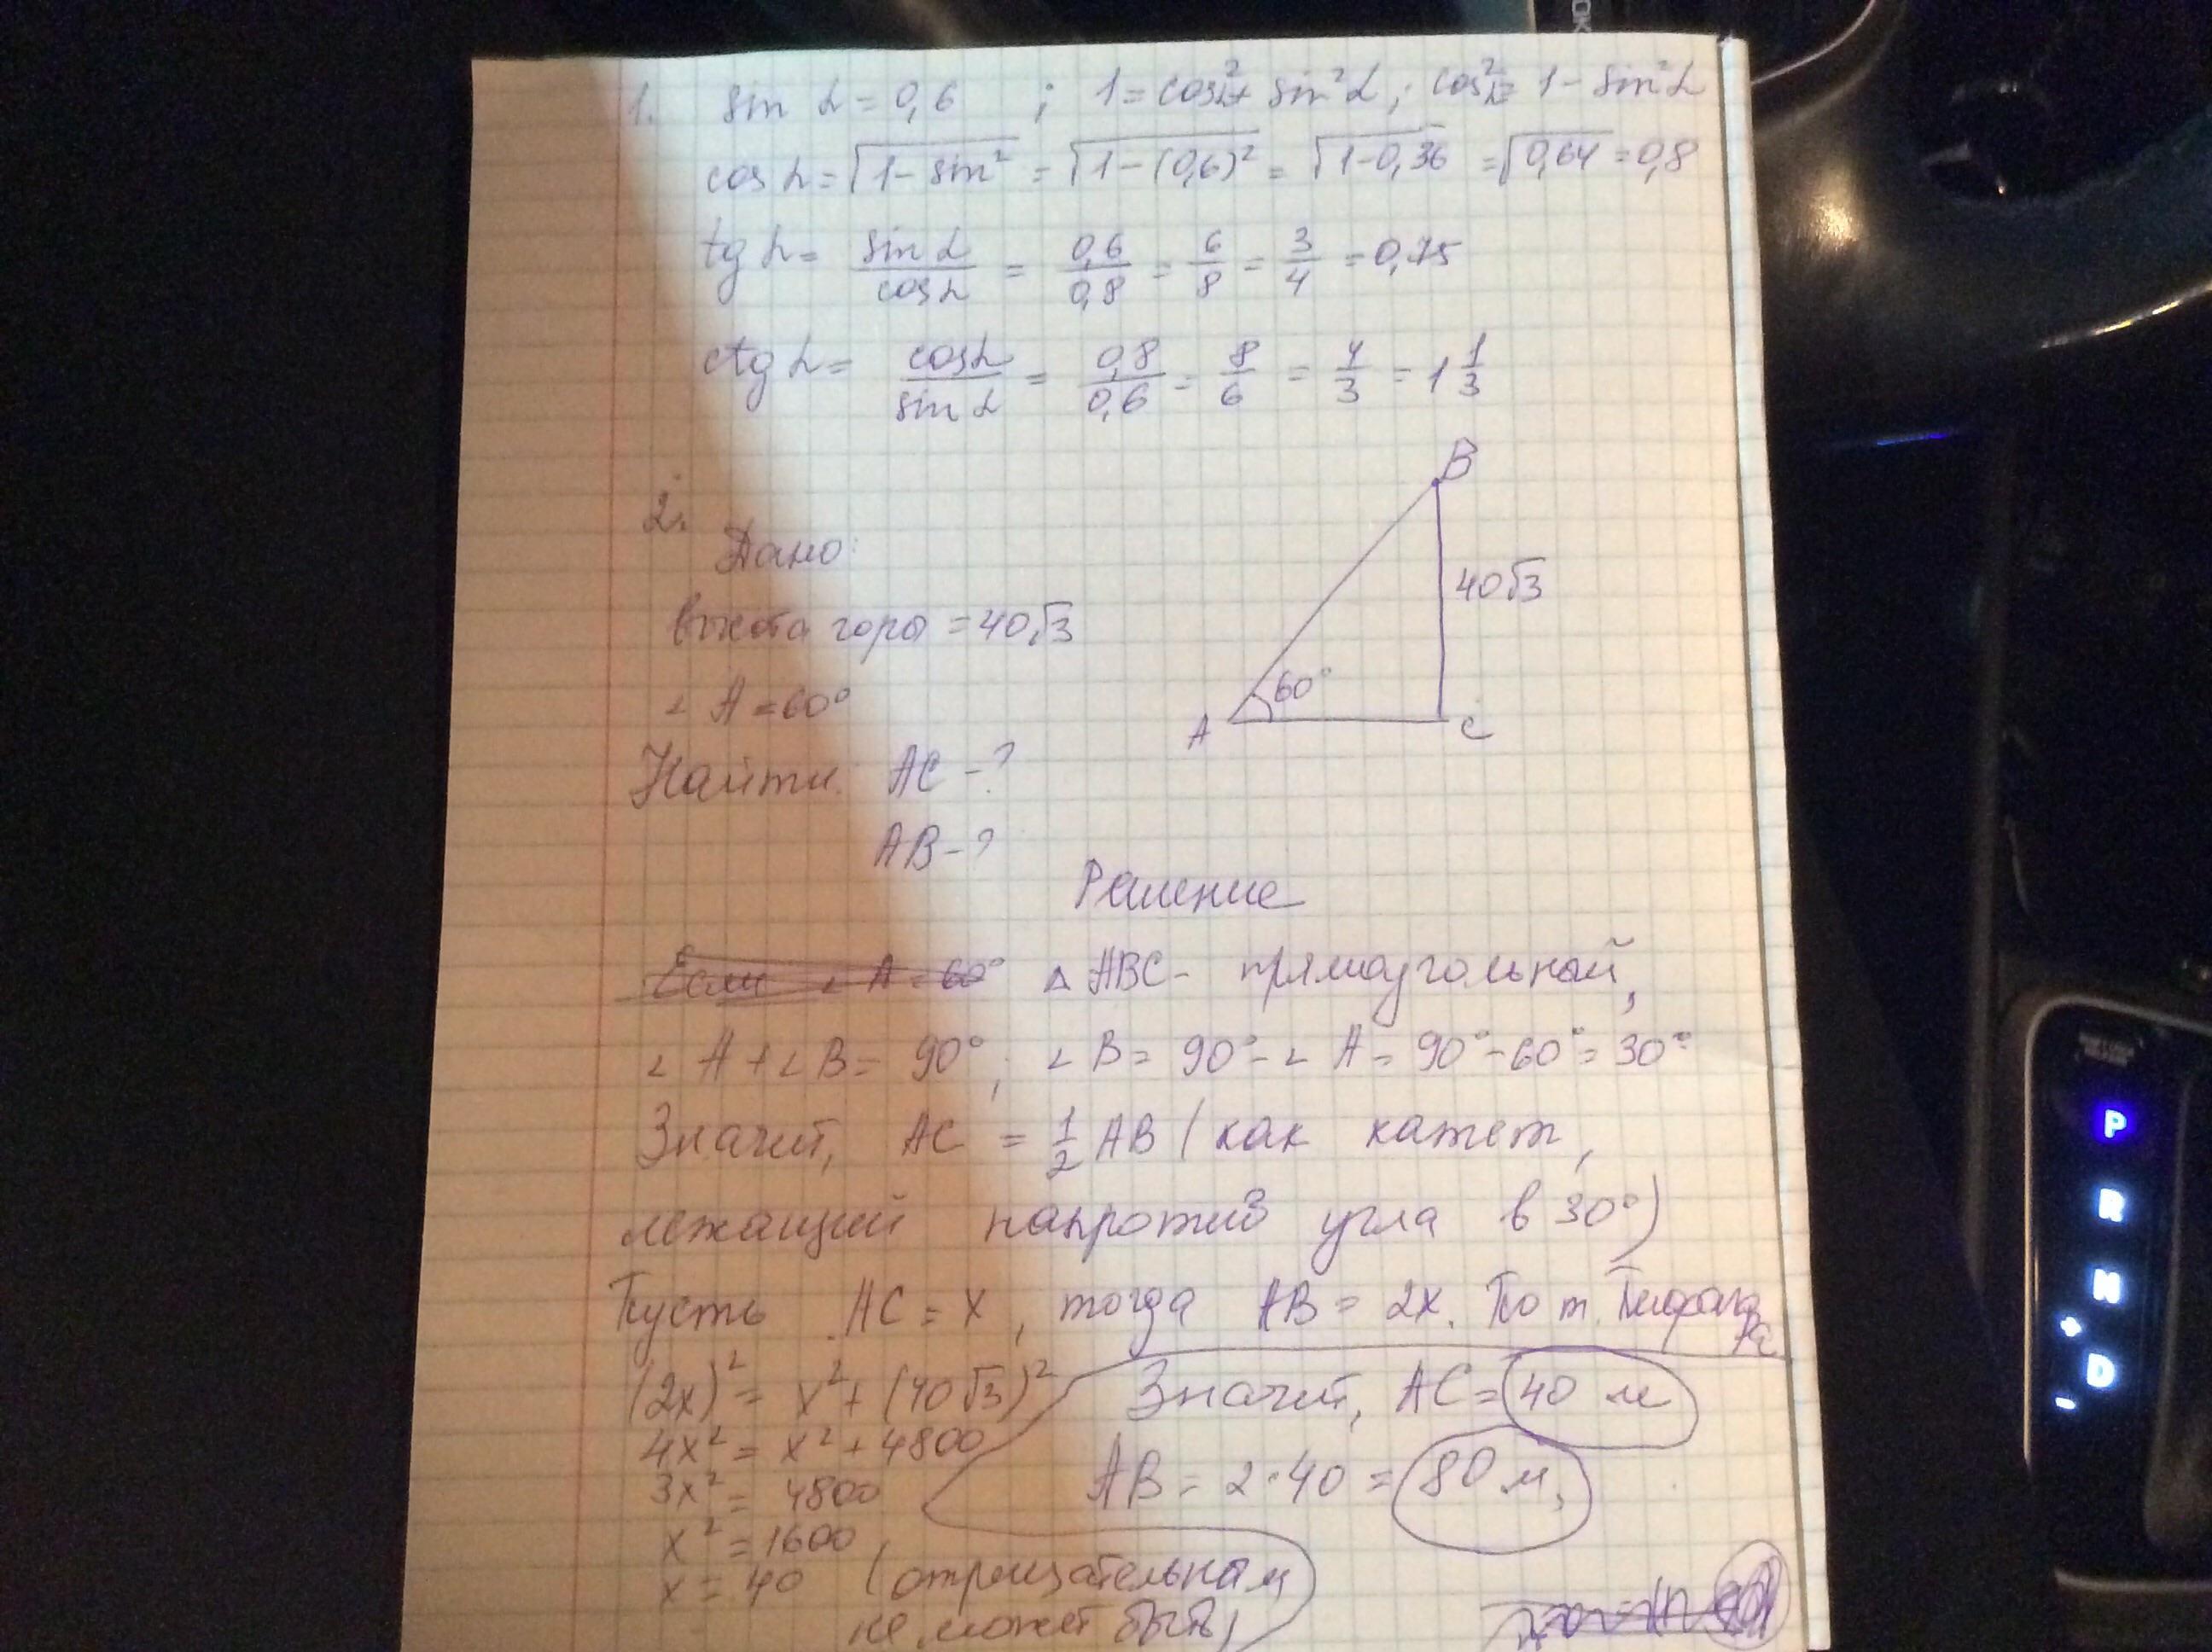 1. sin α = 0,6 ; 1 = cos²α + sin²α ; cos²α = 1 - sin²α
cos α = √(1 - sin²) = √(1 - (0,6)²) = √(1 - 0,36) = √0,64 = 0,8
tg α = sin α / cos α = 0,6 / 0,8 = 6/8 = 3/4 = 0,75
ctg α = cos α / sin α = 0,8 / 0,6 = 8/6 = 4/3 = 1 1/3
B
2.
Дано:
40√3
высота горы = 40√3
60°
∠ A = 60°
A C
Найти: AC - ?
AB - ?
Решение
Если ∠ A = 60° Δ ABC - прямоугольный,
∠ A + ∠ B = 90° ; ∠ B = 90° - ∠ A = 90° - 60° = 30°
Значит, AC = 1/2 AB (как катет,
лежащий напротив угла в 30°)
Пусть AC = x, тогда AB = 2x. По т. Пифагора
(2x)² = x² + (40√3)²
4x² = x² + 4800
3x² = 4800
x² = 1600
x = 40 (отрицательным
не может быть)
Значит, AC = 40 м
AB = 2·40 = 80 м,
P
R
N
+
D
-